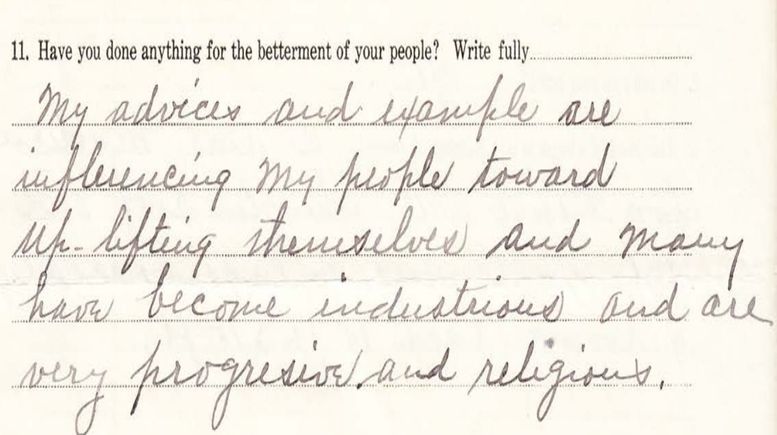 11. Have you done anything for the betterment of your people? Write fully
My advices and example are
influencing my people toward
up-lifting themselves and many
have become industrious and are
very progresive and religious.